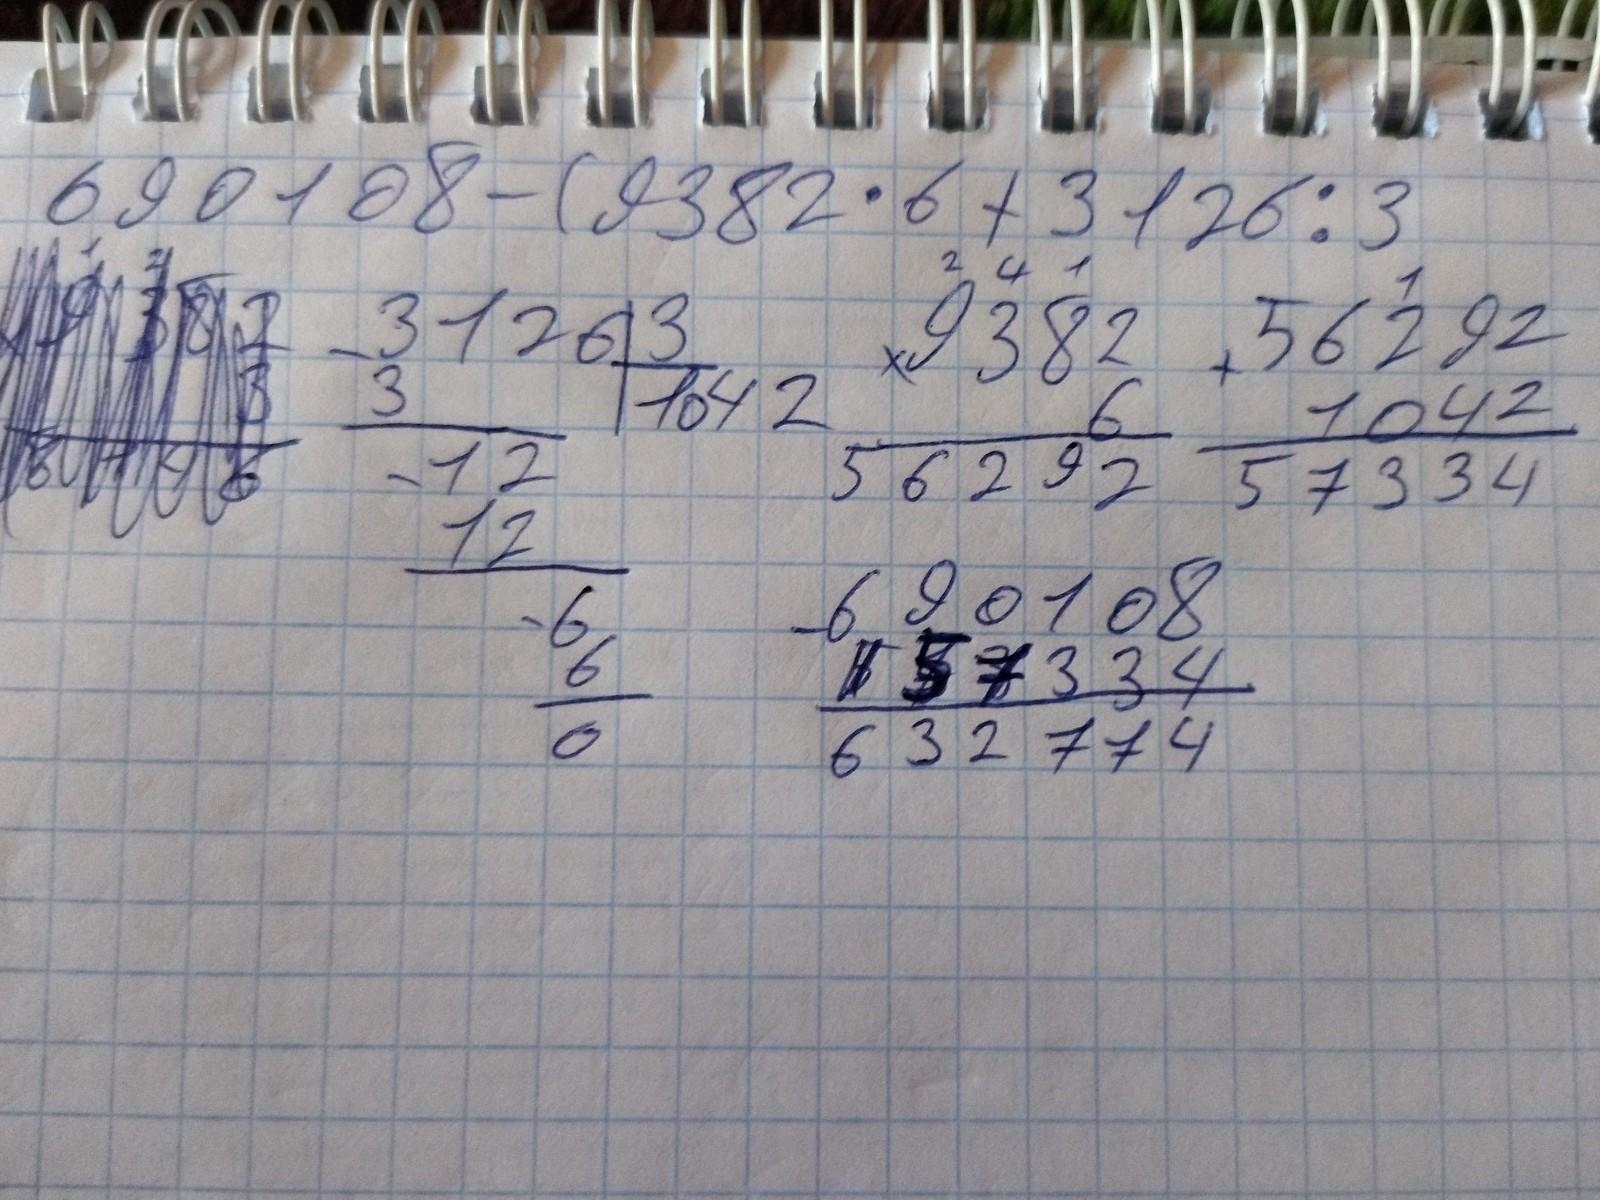 690108-(9382·6+3126:3
-3126|3
3 1042
-12
12
-6
6
0
2 4 1
×9382
6
56292
1
+56292
1042
57334
-690108
57334
632774